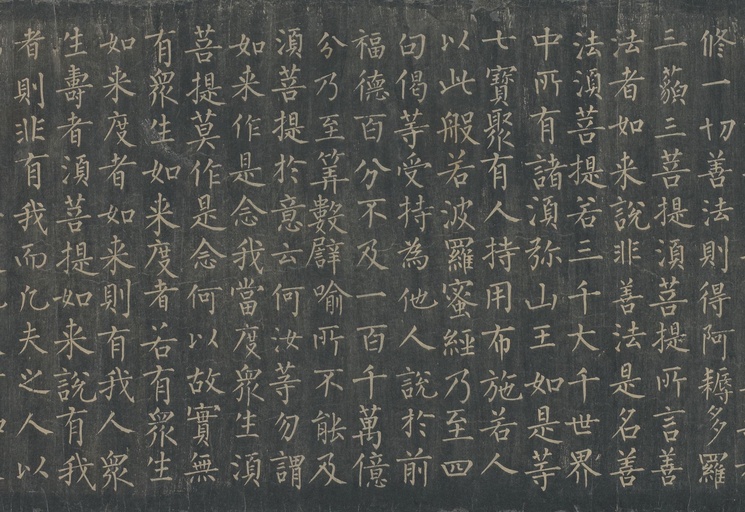 修一切善法則得阿耨多羅
三藐三菩提須菩提所言善
法者如来說非善法是名善
法須菩提若三千大千世界
中所有諸須弥山王如是等
七寶聚有人持用布施若人
以此般若波羅蜜經乃至四
句偈等受持為他人說於前
福德百分不及一百千萬億
分乃至筭數譬喻所不能及
須菩提於意云何汝等勿謂
如来作是念我當度衆生須
菩提莫作是念何以故實無
有衆生如来度者若有衆生
如来度者如来則有我人衆
生壽者須菩提如来說有我
者則非有我而凡夫之人以